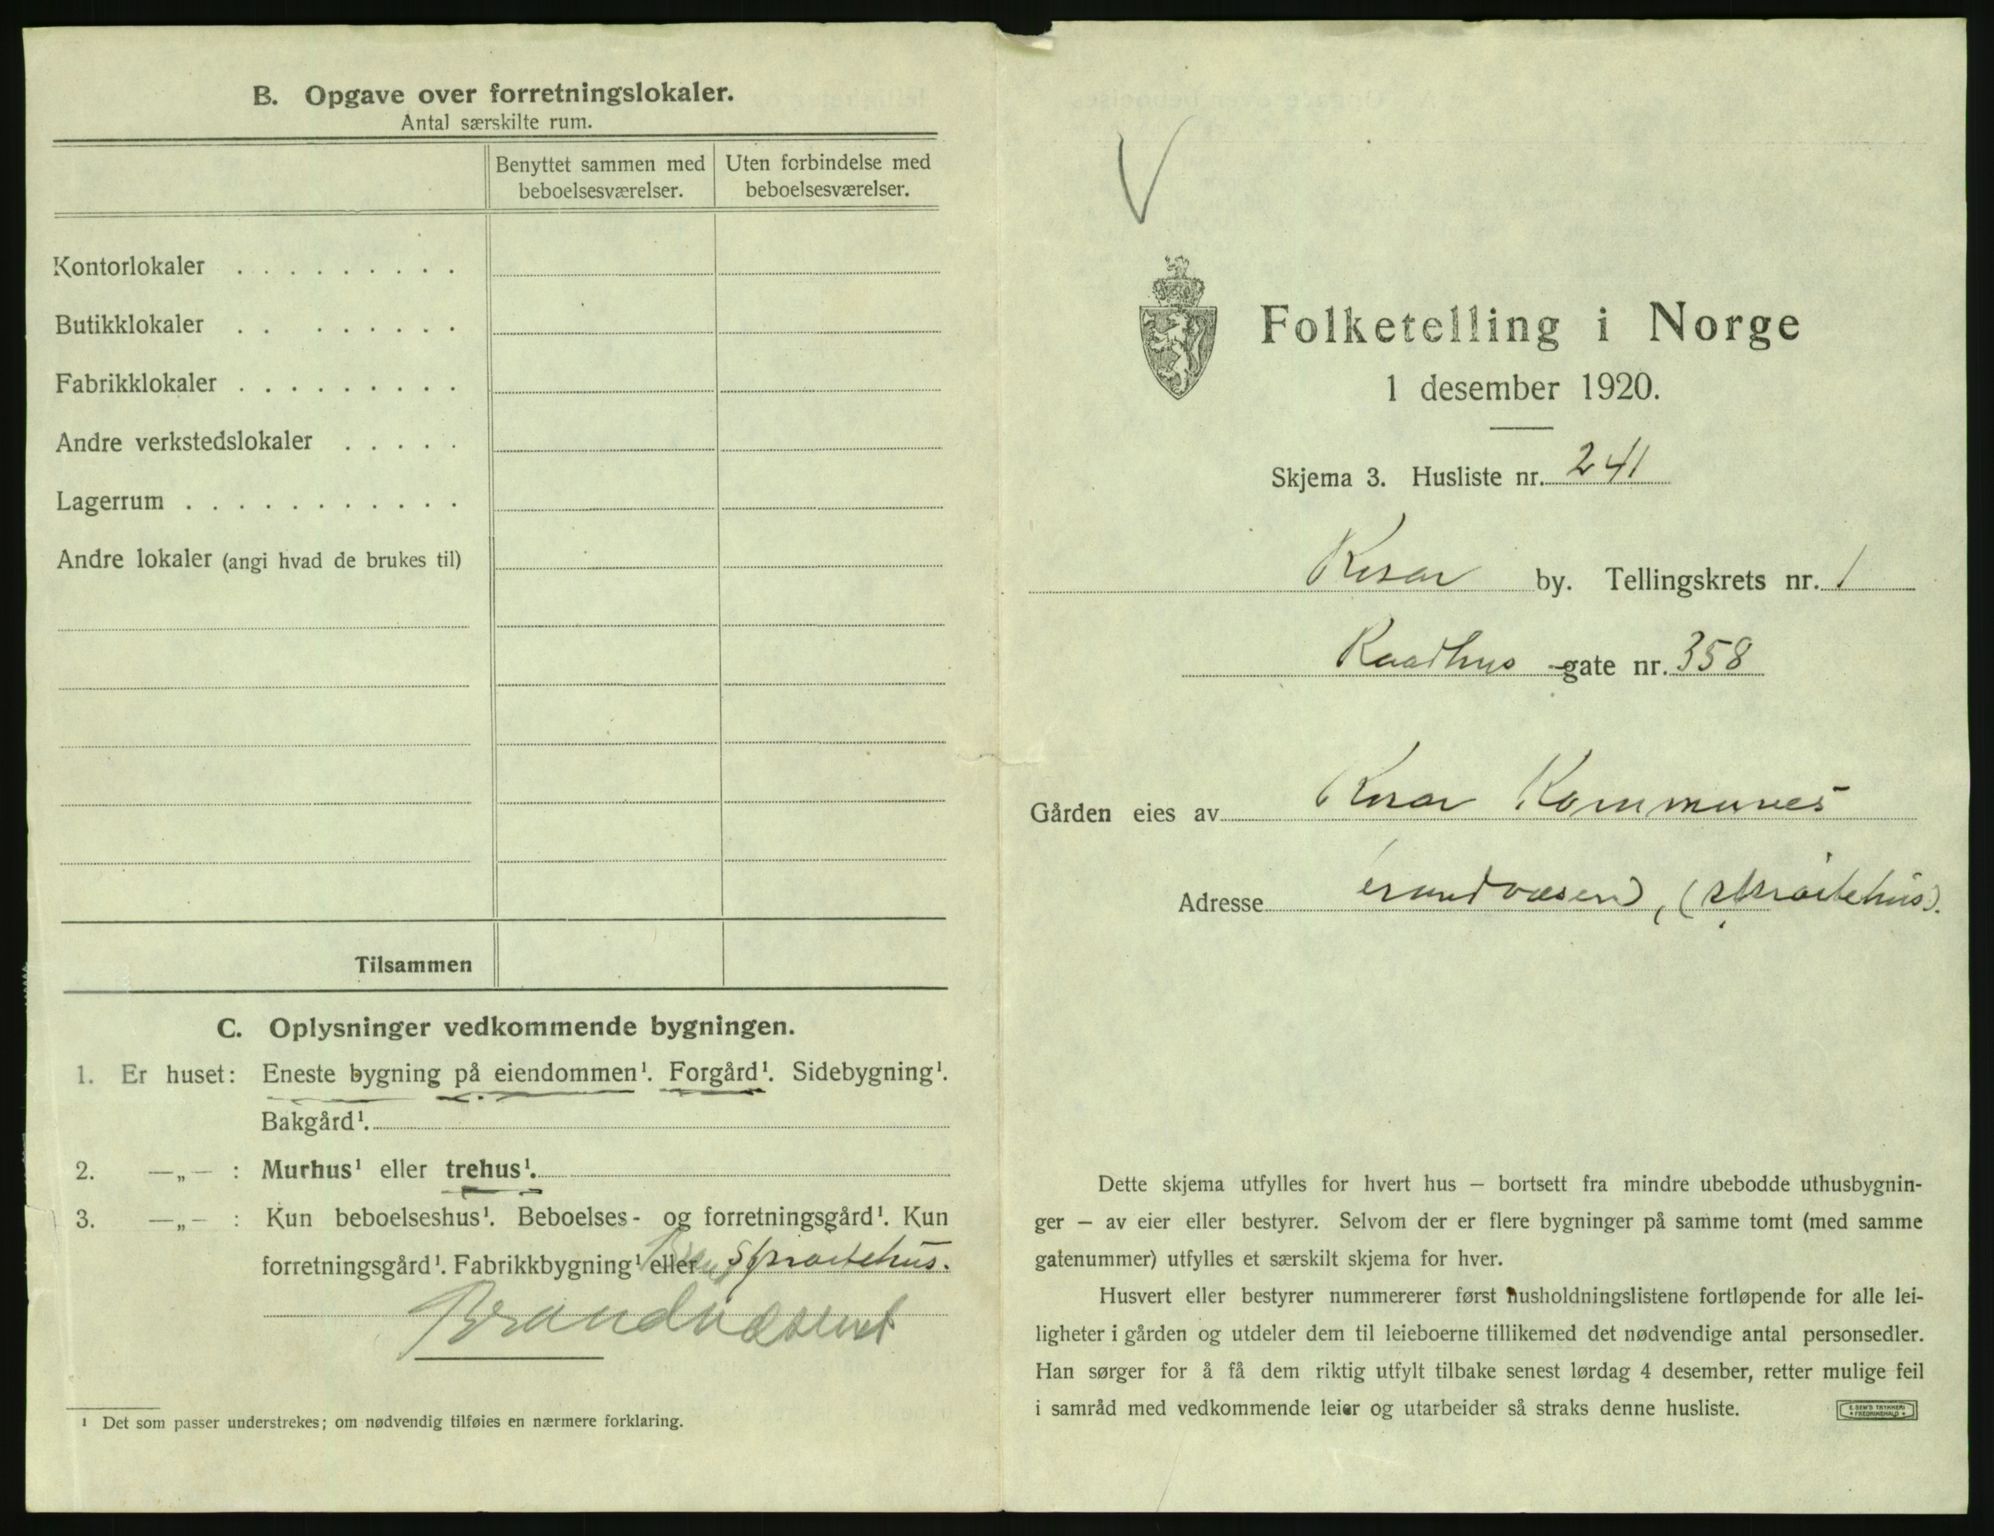 B. Opgave over forretningslokaler.
Antal særskilte rum.
Benyttet sammen med beboelsesværelser.
Uten forbindelse med beboelsesværelser.
Kontorlokaler . . . . . . . . .
Butikklokaler . . . . . . . .
Fabrikklokaler . . . . . . . . .
Andre verkstedslokaler . . . . .
Lagerrum . . . . . . . . . . .
Andre lokaler (angi hvad de brukes til)
Tilsammen
C. Oplysninger vedkommende bygningen.
1. Er huset: Eneste bygning på eiendommen¹. Forgård¹. Sidebygning¹.
Bakgård¹.
2. —„— : Murhus¹ eller trehus¹.
3. —„— : Kun beboelseshus¹. Beboelses- og forretningsgård¹. Kun
forretningsgård¹. Fabrikkbygning¹ eller sprøitehus.
Brandvæsenet
¹ Det som passer understrekes; om nødvendig tilføies en nærmere forklaring.
V
Folketelling i Norge
1 desember 1920.
Skjema 3. Husliste nr. 241
Risør by. Tellingskrets nr. 1
Raadhus -gate nr. 358
Gården eies av Risør Kommunes
Adresse brandvæsen, (sprøitehus).
Dette skjema utfylles for hvert hus – bortsett fra mindre ubebodde uthusbygnin-
ger – av eier eller bestyrer. Selvom der er flere bygninger på samme tomt (med samme
gatenummer) utfylles et særskilt skjema for hver.
Husvert eller bestyrer nummererer først husholdningslistene fortløpende for alle lei-
ligheter i gården og utdeler dem til leieboerne tillikemed det nødvendige antal personsedler.
Han sørger for å få dem riktig utfylt tilbake senest lørdag 4 desember, retter mulige feil
i samråd med vedkommende leier og utarbeider så straks denne husliste.
E. SEM'S TRYKKERI
FREDRIKSHALD